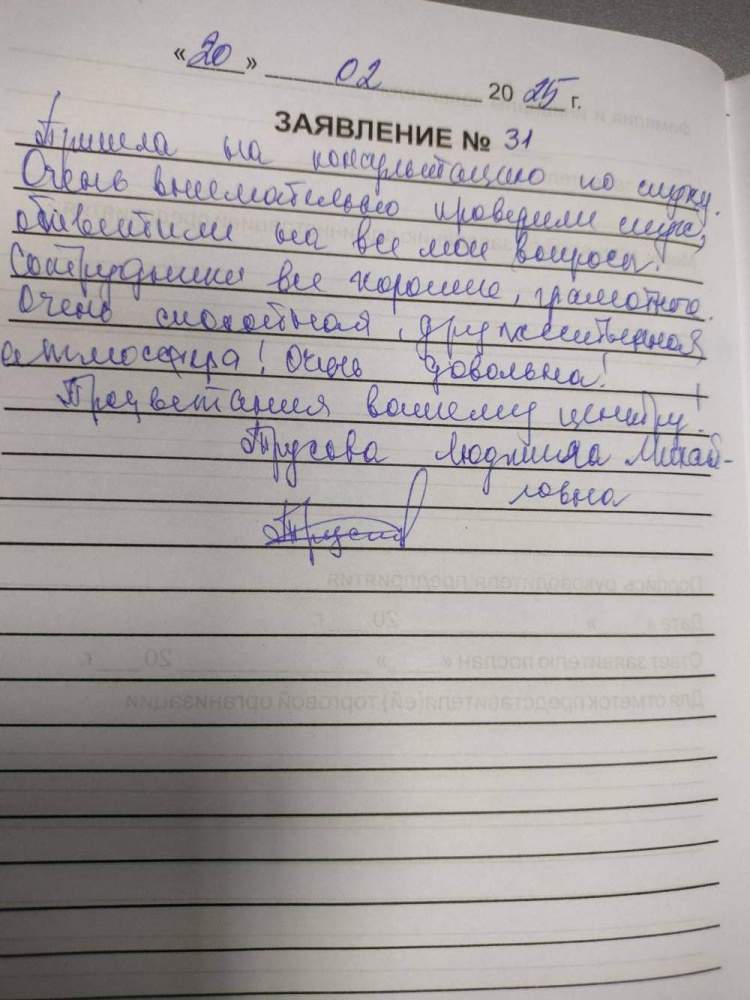 «20» 02 2025 г.
ЗАЯВЛЕНИЕ № 31
Пришла на консультацию по слуху.
Очень внимательно проверили слух,
ответили на все мои вопросы.
Сотрудники все хорошие, грамотные.
Очень спокойная, дружественная
атмосфера! Очень довольна!
Процветания вашему центру!
Трусова Людмила Михай-
ловна
Подпись руководителя предприятия
Дата « » 20 г.
Ответ заявителю послан « » 20 г.
Для отметок представителя(ей) торговой организации